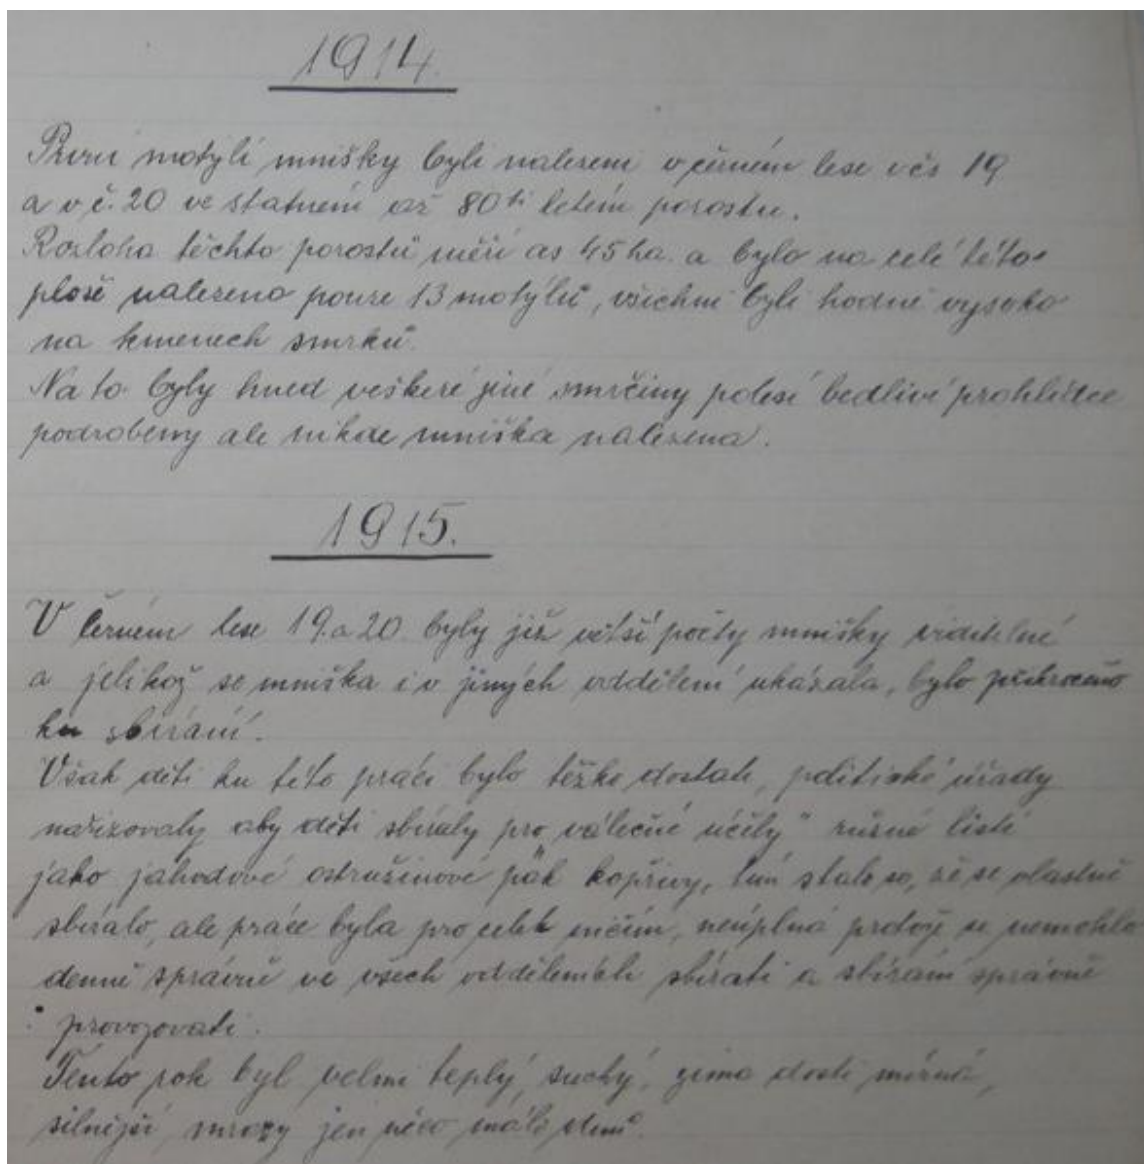 1914.
První motýli mnišky byli nalezeni v černém lese v čís 19
a v č. 20 ve statném až 80ti letém porostu.
Rozloha těchto porostů měří as 45 ha. a bylo na celé této
ploše nalezeno pouze 13 motýlů, všichni byli hodně vysoko
na kmenech smrků.
Na to byly hned veškeré jiné smrčiny polesí bedlivé prohlídce
podrobeny ale nikde mniška nalezena.
1915.
V černém lese 19. a 20 byly již větší počty mnišky viditelné
a jelikož se mniška i v jiných oddělení ukázala, bylo přikročeno
ku sbírání.
Však děti ku této práci bylo těžko dostati, politické úřady
nařizovaly aby děti sbíraly pro válečné účely" různé listí
jako jahodové ostružinové pak kopřivy, tím stalo se, že se vlastně
sbíralo, ale práce byla pro celek ničím, neúplná protož se nemohlo
denně správně ve všech odděleních sbírati a sbírání správně
provozovati.
Tento rok byl velmi teplý, suchý, zima dosti mírná,
silnější mrazy jen něco málo dnů.